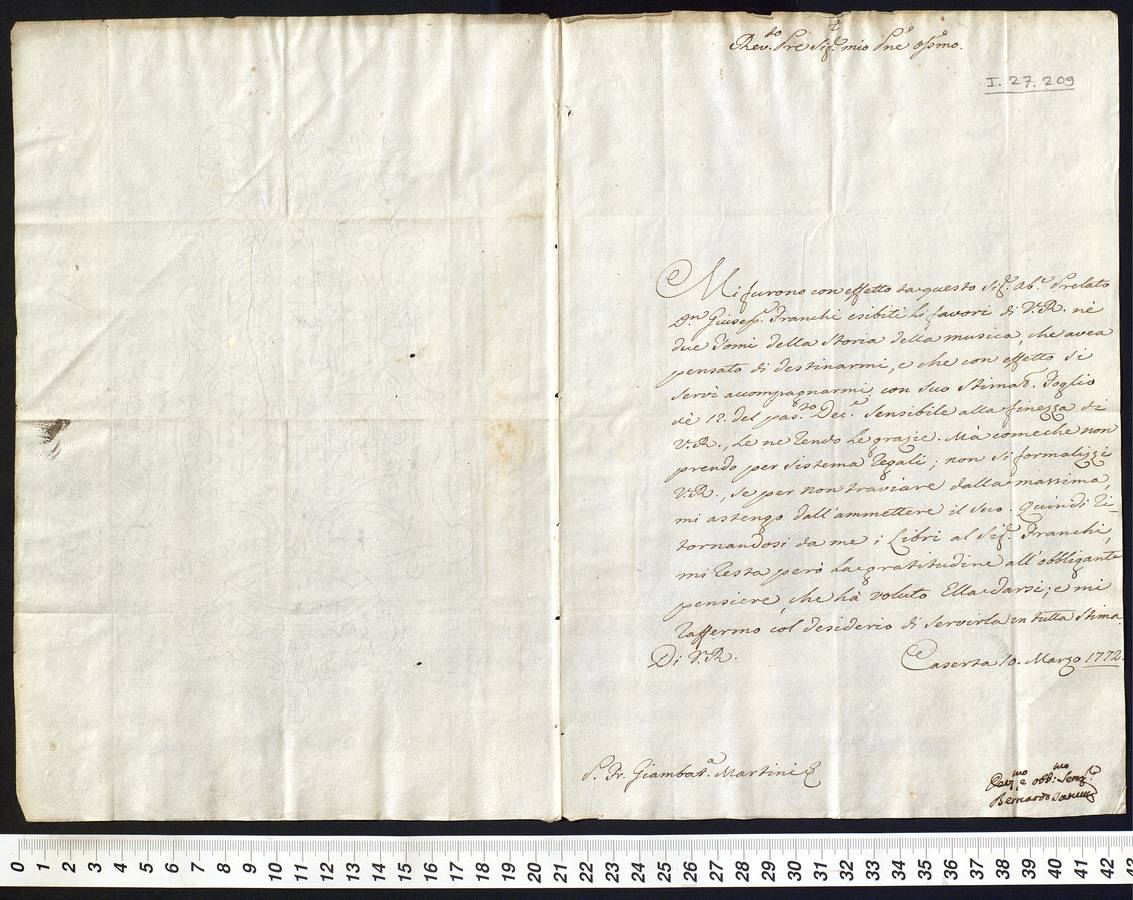 Rev.do Pre Sig.r mio Pne Ossmo.
I. 27. 209
Mi furono con effetto da questo Sig.r Ab.e Prelato
Dn. Giusep.e Franchi esibiti li favori di V.R. nè
due Tomi della Storia della musica, che avea
pensato di destinarmi, e che con effetto si
servì accompagnarmi con suo Stimat.o Foglio
dè 12. del pas.to Dec.e Sensibile alla finezza di
V.R., le ne rendo le grazie. Mà come che non
prendo per sistema regali; non si formalizzi
V.R., se per non traviare dalla massima,
mi astengo dall'ammettere il suo. Quindi ri-
tornandosi da me i Libri al Sig.r Franchi,
mi resta però la gratitudine all'obbligante
pensiere, che hà voluto Ella darsi; e mi
raffermo col desiderio di servirla in tutta stima
Di V.R.
Caserta 10. Marzo 1772.
P. Fr. Giambat.a Martini
Dev.mo e obb.mo Serv.re
Bernardo Tanucci
0 1 2 3 4 5 6 7 8 9 10 11 12 13 14 15 16 17 18 19 20 21 22 23 24 25 26 27 28 29 30 31 32 33 34 35 36 37 38 39 40 41 42 43